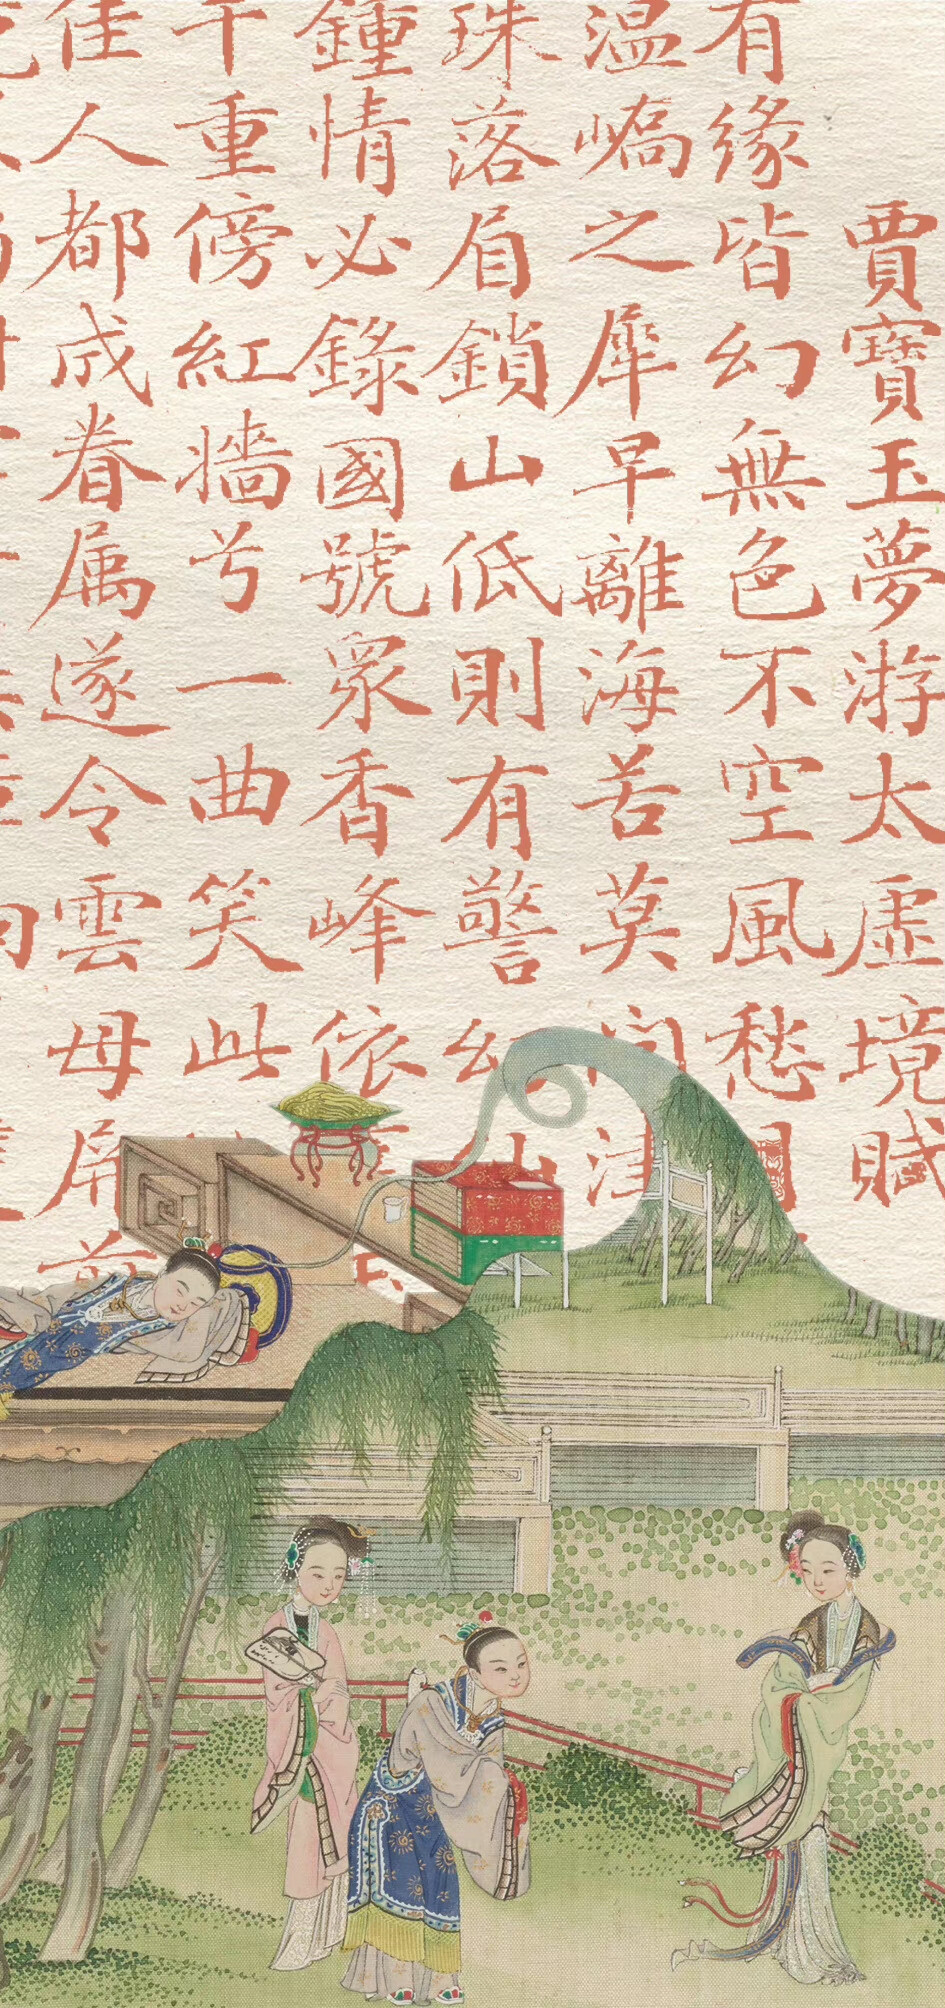 賈寶玉夢游太虛境賦
有緣皆幻無色不空風愁
温嶠之犀早離海苦莫問津
珠落眉鎖山低則有警幻仙
鍾情必錄國號衆香峰依
千重傍紅牆兮一曲笑此
佳人都成眷属遂令雲母屏前